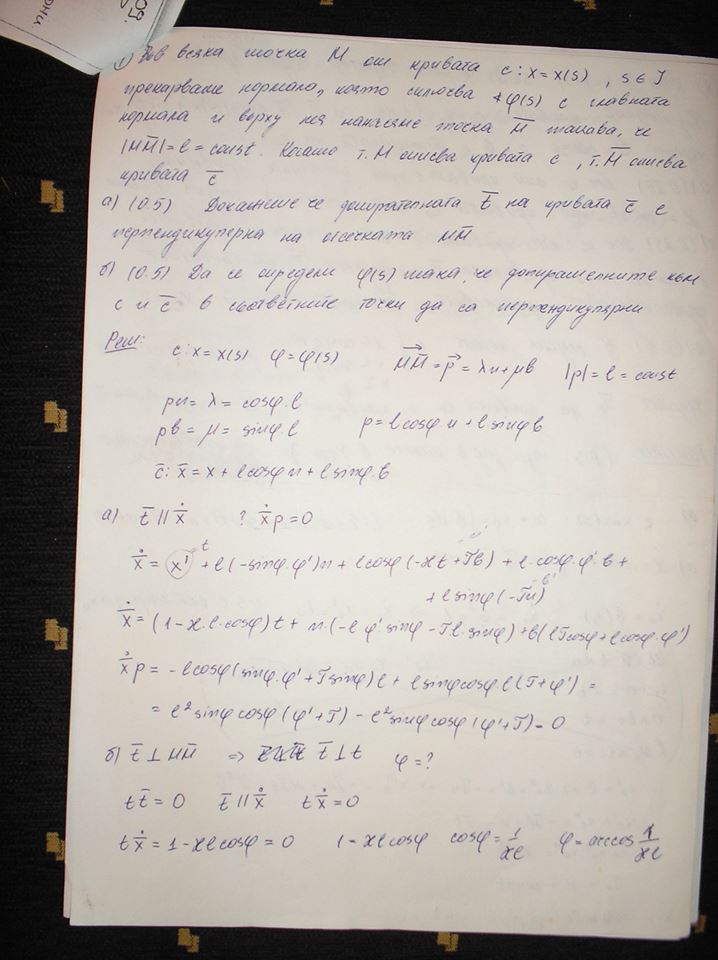 1) Във всяка точка M от кривата c: x = x(s), s ∈ J
прекарваме нормала, която сключва ∢φ(s) с главната
нормала и върху нея нанасяме точка M̄ такава, че
|MM̄| = l = const. Когато т. M описва кривата c, т. M̄ описва
кривата c̄
а) (0.5) Докажете че допирателната t̄ на кривата c̄ е
перпендикулярна на отсечката MM̄
б) (0.5) Да се определи φ(s) така, че допирателните към
c и c̄ в съответните точки да са перпендикулярни
Реш:
c: x = x(s) φ = φ(s) MM̄ = p⃗ = λn + μb |p| = l = const
pn = λ = cosφ.l
pb = μ = sinφ.l p = l cosφ n + l sinφ b
c̄: x̄ = x + l cosφ n + l sinφ.b
а) t̄ || ẋ̄ ? ẋ̄ p = 0
ẋ̄ = x' + l(-sinφ.φ')n + l cosφ(-ϰt + Tb) + l.cosφ.φ'.b +
+ l sinφ(-Tn)
ẋ̄ = (1-ϰ.l.cosφ)t + n.(-l φ' sinφ - Tl.sinφ) + b(lTcosφ + l cosφ.φ')
ẋ̄ p = -l cosφ(sinφ.φ' + T sinφ)l + l sinφ cosφ.l(T + φ') =
= l² sinφ cosφ(φ' + T) - l² sinφ cosφ(φ' + T) = 0
б) t̄ ⊥ MM̄ ⇒ t̄ ⊥ t φ = ?
t t̄ = 0 t̄ || ẋ̄ t ẋ̄ = 0
t ẋ̄ = 1 - ϰl cosφ = 0 1 - ϰl cosφ cosφ = 1/ϰl φ = arccos 1/ϰl